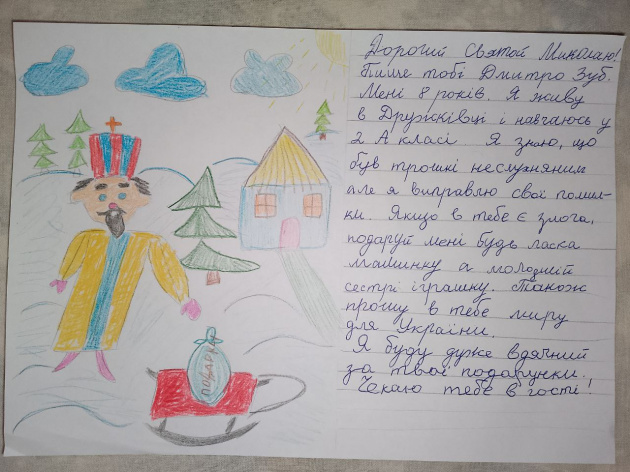 Дорогий Святой Миколаю!
Пише тобі Дмитро Зуб.
Мені 8 років. Я живу
в Дружківці і навчаюсь у
2 А класі Я знаю, що
був трошкі неслухняним
але я виправлю свої помил-
ки. Якщо в тебе є змога,
подаруй мені будь ласка
машинку а молодшій
сестрі іграшку. Також
прошу в тебе миру
для України.
Я буду дуже вдячний
за твої подарунки.
Чекаю тебе в гості!
подарок